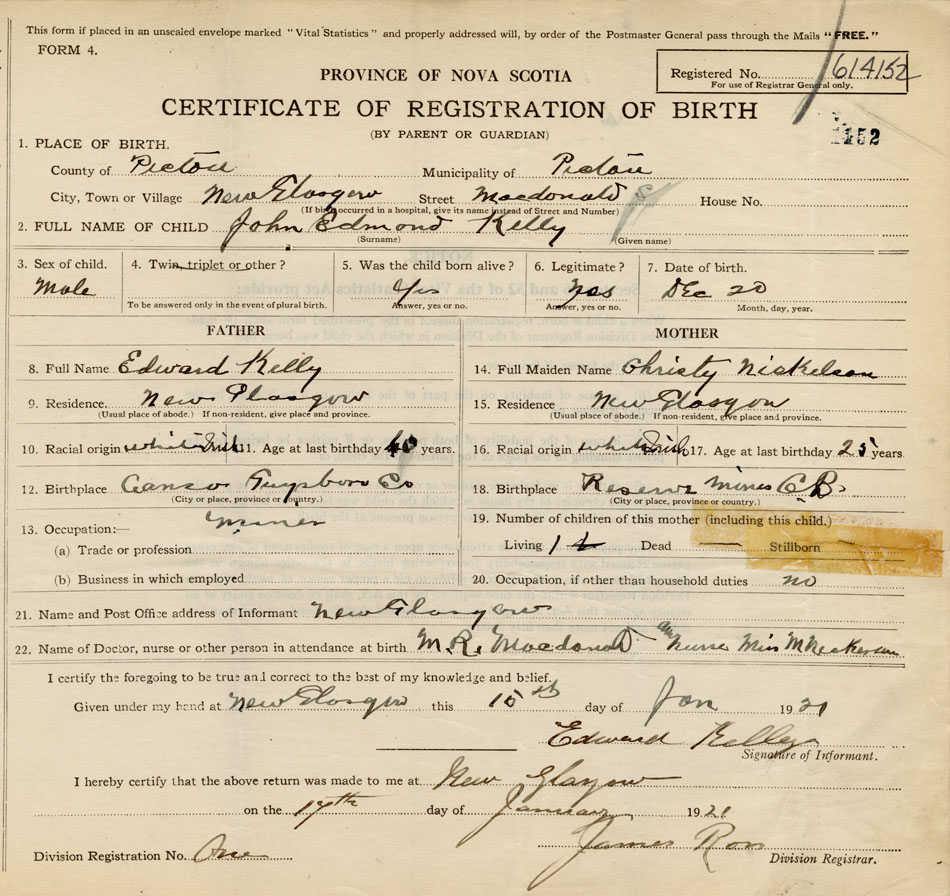 This form if placed in an unsealed envelope marked "Vital Statistics" and properly addressed will, by order of the Postmaster General pass through the Mails "FREE."
FORM 4.
PROVINCE OF NOVA SCOTIA
Registered No. 614152
For use of Registrar General only.
CERTIFICATE OF REGISTRATION OF BIRTH
(BY PARENT OR GUARDIAN)
1. PLACE OF BIRTH.
County of Pictou Municipality of Pictou
City, Town or Village New Glasgow Street Macdonald House No.
(If birth occurred in a hospital, give its name instead of Street and Number)
2. FULL NAME OF CHILD John Edmond Kelly
(Surname) (Given name)
3. Sex of child. 4. Twin, triplet or other? 5. Was the child born alive? 6. Legitimate? 7. Date of birth.
Male Yes Yes Dec 20
To be answered only in the event of plural birth. Answer, yes or no. Answer, yes or no. Month, day, year.
FATHER MOTHER
8. Full Name Edward Kelly 14. Full Maiden Name Christy Nickelson
9. Residence. New Glasgow 15. Residence New Glasgow
(Usual place of abode.) If non-resident, give place and province. (Usual place of abode.) If non-resident, give place and province.
10. Racial origin white Irish 11. Age at last birthday 40 years. 16. Racial origin white Irish 17. Age at last birthday 25 years
12. Birthplace Canso Guysboro Co 18. Birthplace Reserve Mines C B.
(City or place, province or country.) (City or place, province or country.)
13. Occupation:— Miner 19. Number of children of this mother (including this child.)
(a) Trade or profession Living 1 Dead — Stillborn
(b) Business in which employed 20. Occupation, if other than household duties no
21. Name and Post Office address of Informant New Glasgow
22. Name of Doctor, nurse or other person in attendance at birth M. R. Macdonald and Nurse Miss
I certify the foregoing to be true and correct to the best of my knowledge and belief.
Given under my hand at New Glasgow this 15th day of Jan 1921
Edward Kelley
Signature of Informant.
I hereby certify that the above return was made to me at New Glasgow
on the day of January 1921
James Ross
Division Registration No. One Division Registrar.